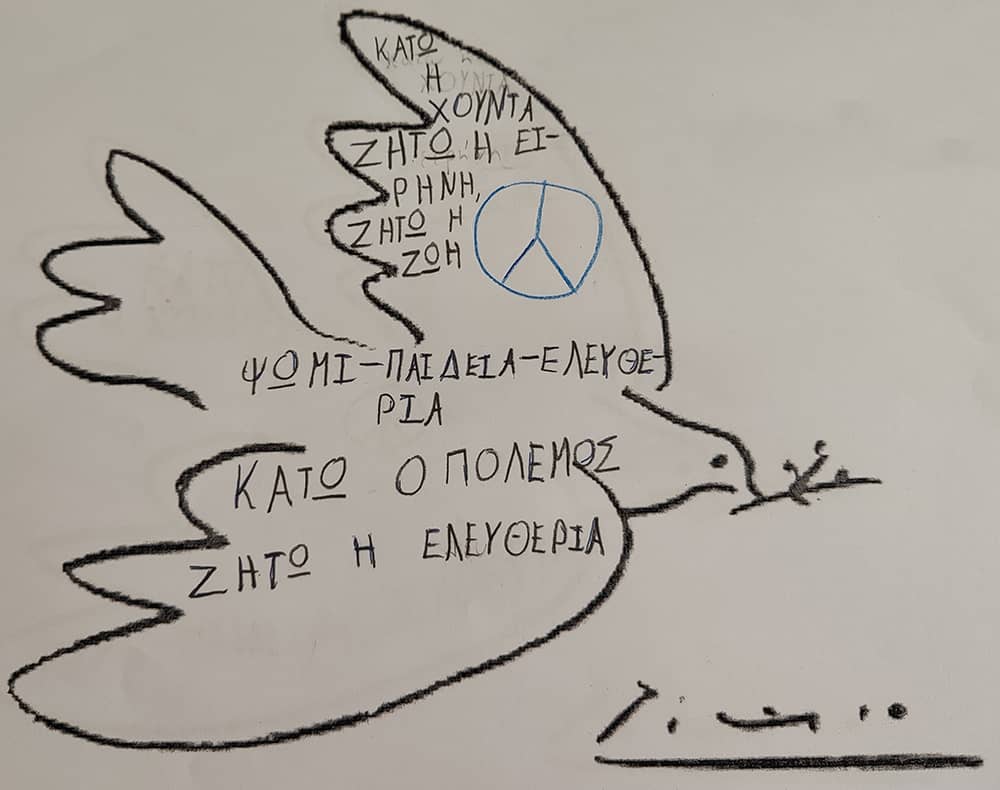 ΚΑΤΩ
Η
ΧΟΥΝΤΑ
ΖΗΤΩ Η ΕΙ-
ΡΗΝΗ,
ΖΗΤΩ Η
ΖΩΗ
ΨΩΜΙ-ΠΑΙΔΕΙΑ-ΕΛΕΥΘΕ-
ΡΙΑ
ΚΑΤΩ Ο ΠΟΛΕΜΟΣ
ΖΗΤΩ Η ΕΛΕΥΘΕΡΙΑ
Picasso